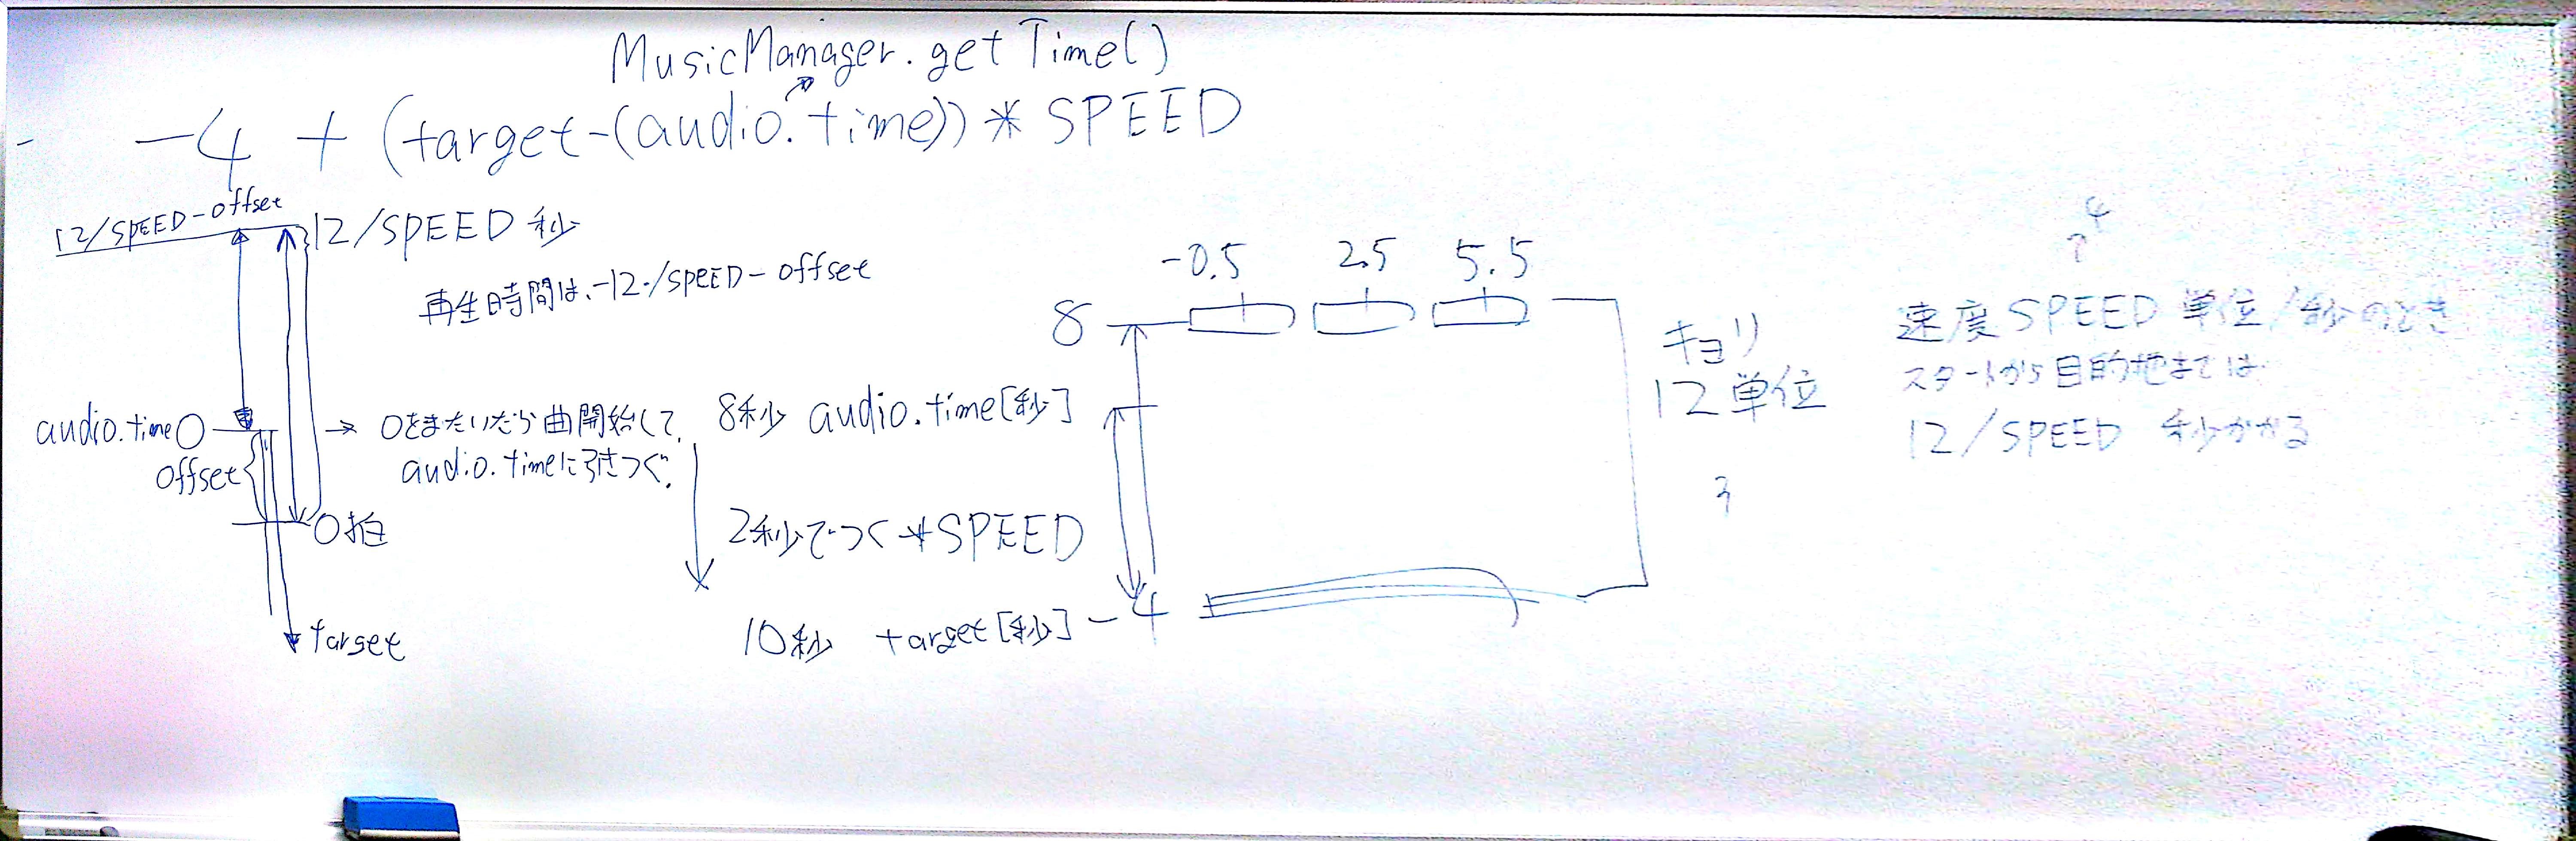 MusicManager.getTime()
-4 + (target-(audio.time)) * SPEED
12/SPEED-offset
12/SPEED 秒
再生時間は、-12/SPEED-offset
audio.time 0
→ 0をまたいだら曲開始して、
audio.timeに引きつぐ。
offset
0拍
target
8秒 audio.time[秒]
2秒でつく *SPEED
10秒 target[秒]
-0.5 2.5 5.5
8
-4
キョリ
12単位
速度 SPEED 単位/秒のとき
スタートから目的地までは
12/SPEED 秒かかる